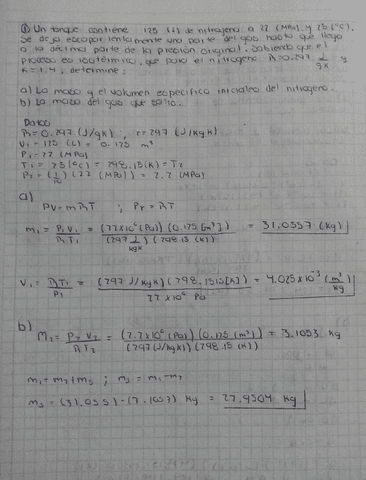 ① Un tanque contiene 125 (L) de nitrogeno a 22 (MPa) y 25 (°C).
Se deja escapar lentamente una parte del gas hasta que llega
a la décima parte de la presión original, sabiendo que el
proceso es isotérmico, que para el nitrogeno R=0.297 J/gK y
K=1.4, determine:
a) La masa y el volumen especifico iniciales del nitrogeno.
b) La masa del gas que salio.
Datos
R=0.297 (J/gK), r=297 (J/kgK)
V₁=125 (L) = 0.125 m³
P₁=22 (MPa)
T₁=25 (°C) = 298.15(K) = T₂
P₂=(1/10)(22 (MPa)) = 2.2 (MPa)
a)
PV=mRT ; Pv=RT
m₁= P₁V₁/RT₁ = (22x10⁶ (Pa)) (0.125 [m³])/(297 J/kgK) (298.15 (K)) = 31.0557 (kg)
V₁= RT₁/P₁ = (297 J/kgK) (298.15 [K])/22x10⁶ Pa = 4.025x10⁻³ (m³/kg)
b)
M₂= P₂V₂/RT₂ = (2.2x10⁶ (Pa)) (0.125 (m³))/(297 (J/kgK) (298.15 (K)) = 3.1053 kg
m₁=m₂+ms ; ms = m₁-m₂
ms = (31.055)-(3.1053) kg = 27.9504 kg